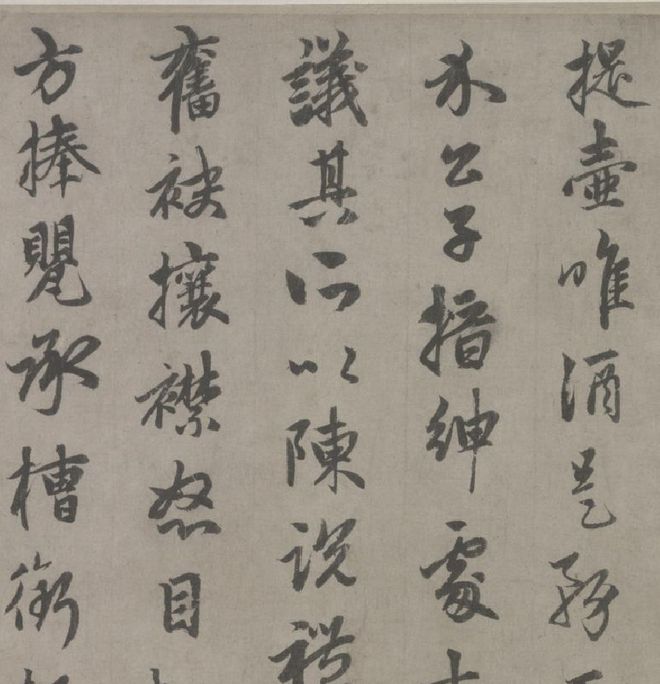 提壺唯酒是務
介公子搢紳處士
議其所以陳說禮
奮袂攘襟怒目
方捧甖承槽銜